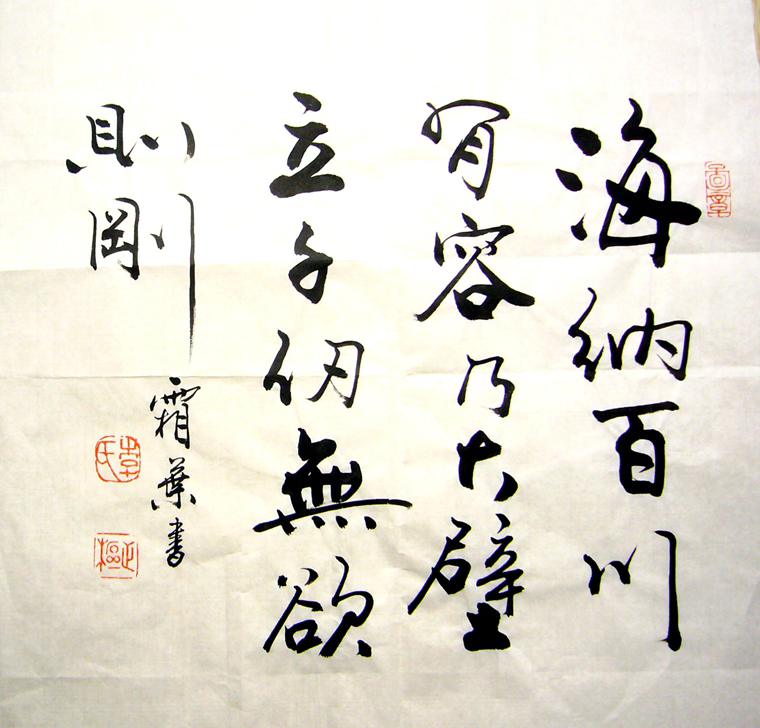 海納百川
有容乃大壁
立千仞無欲
則剛
霜葉書
李氏